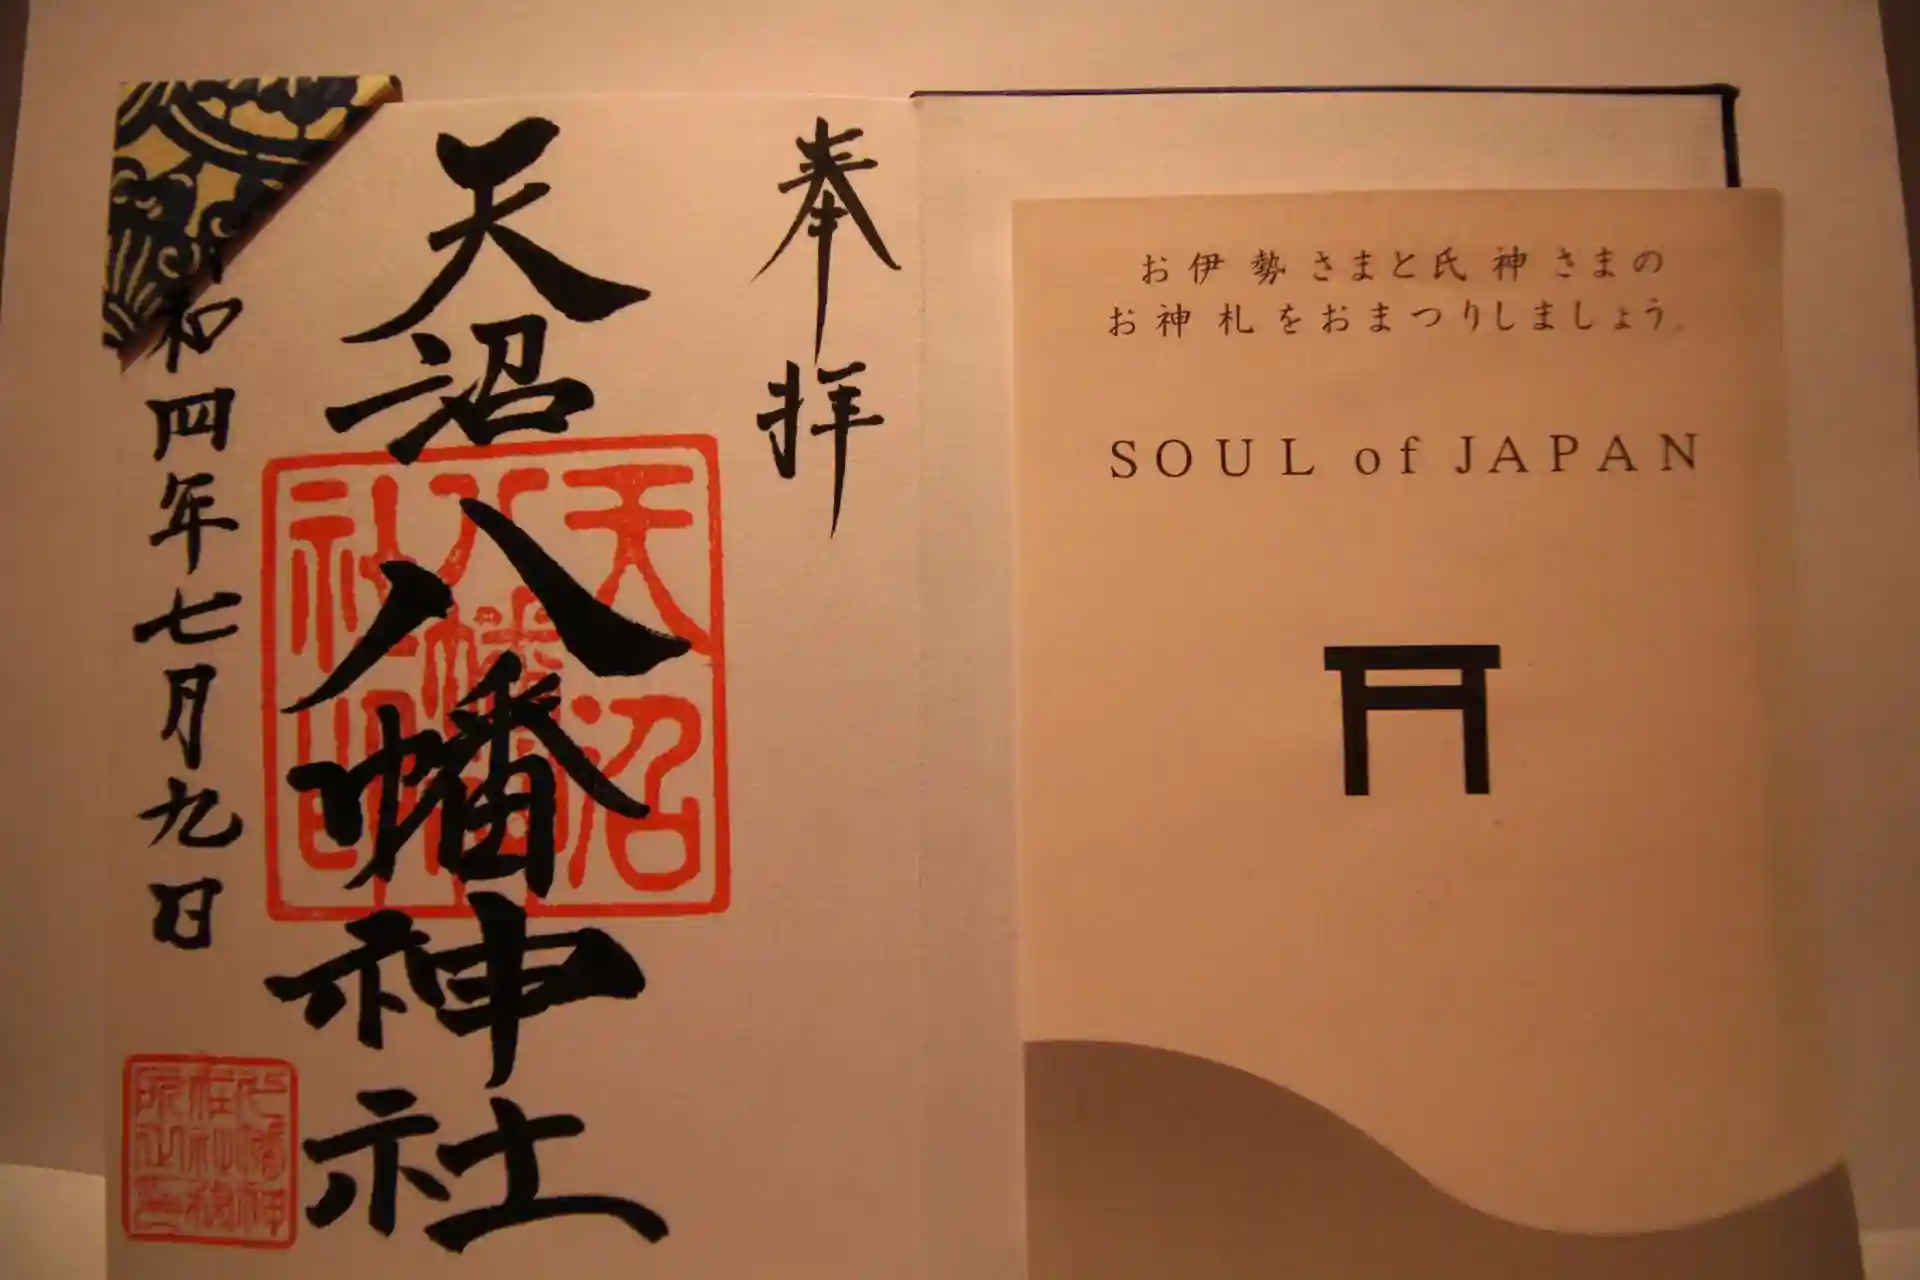 奉拝
天沼八幡神社
天沼
八幡
社印
和四年七月九日
お伊勢さまと氏神さまの
お神札をおまつりしましょう。
SOUL of JAPAN